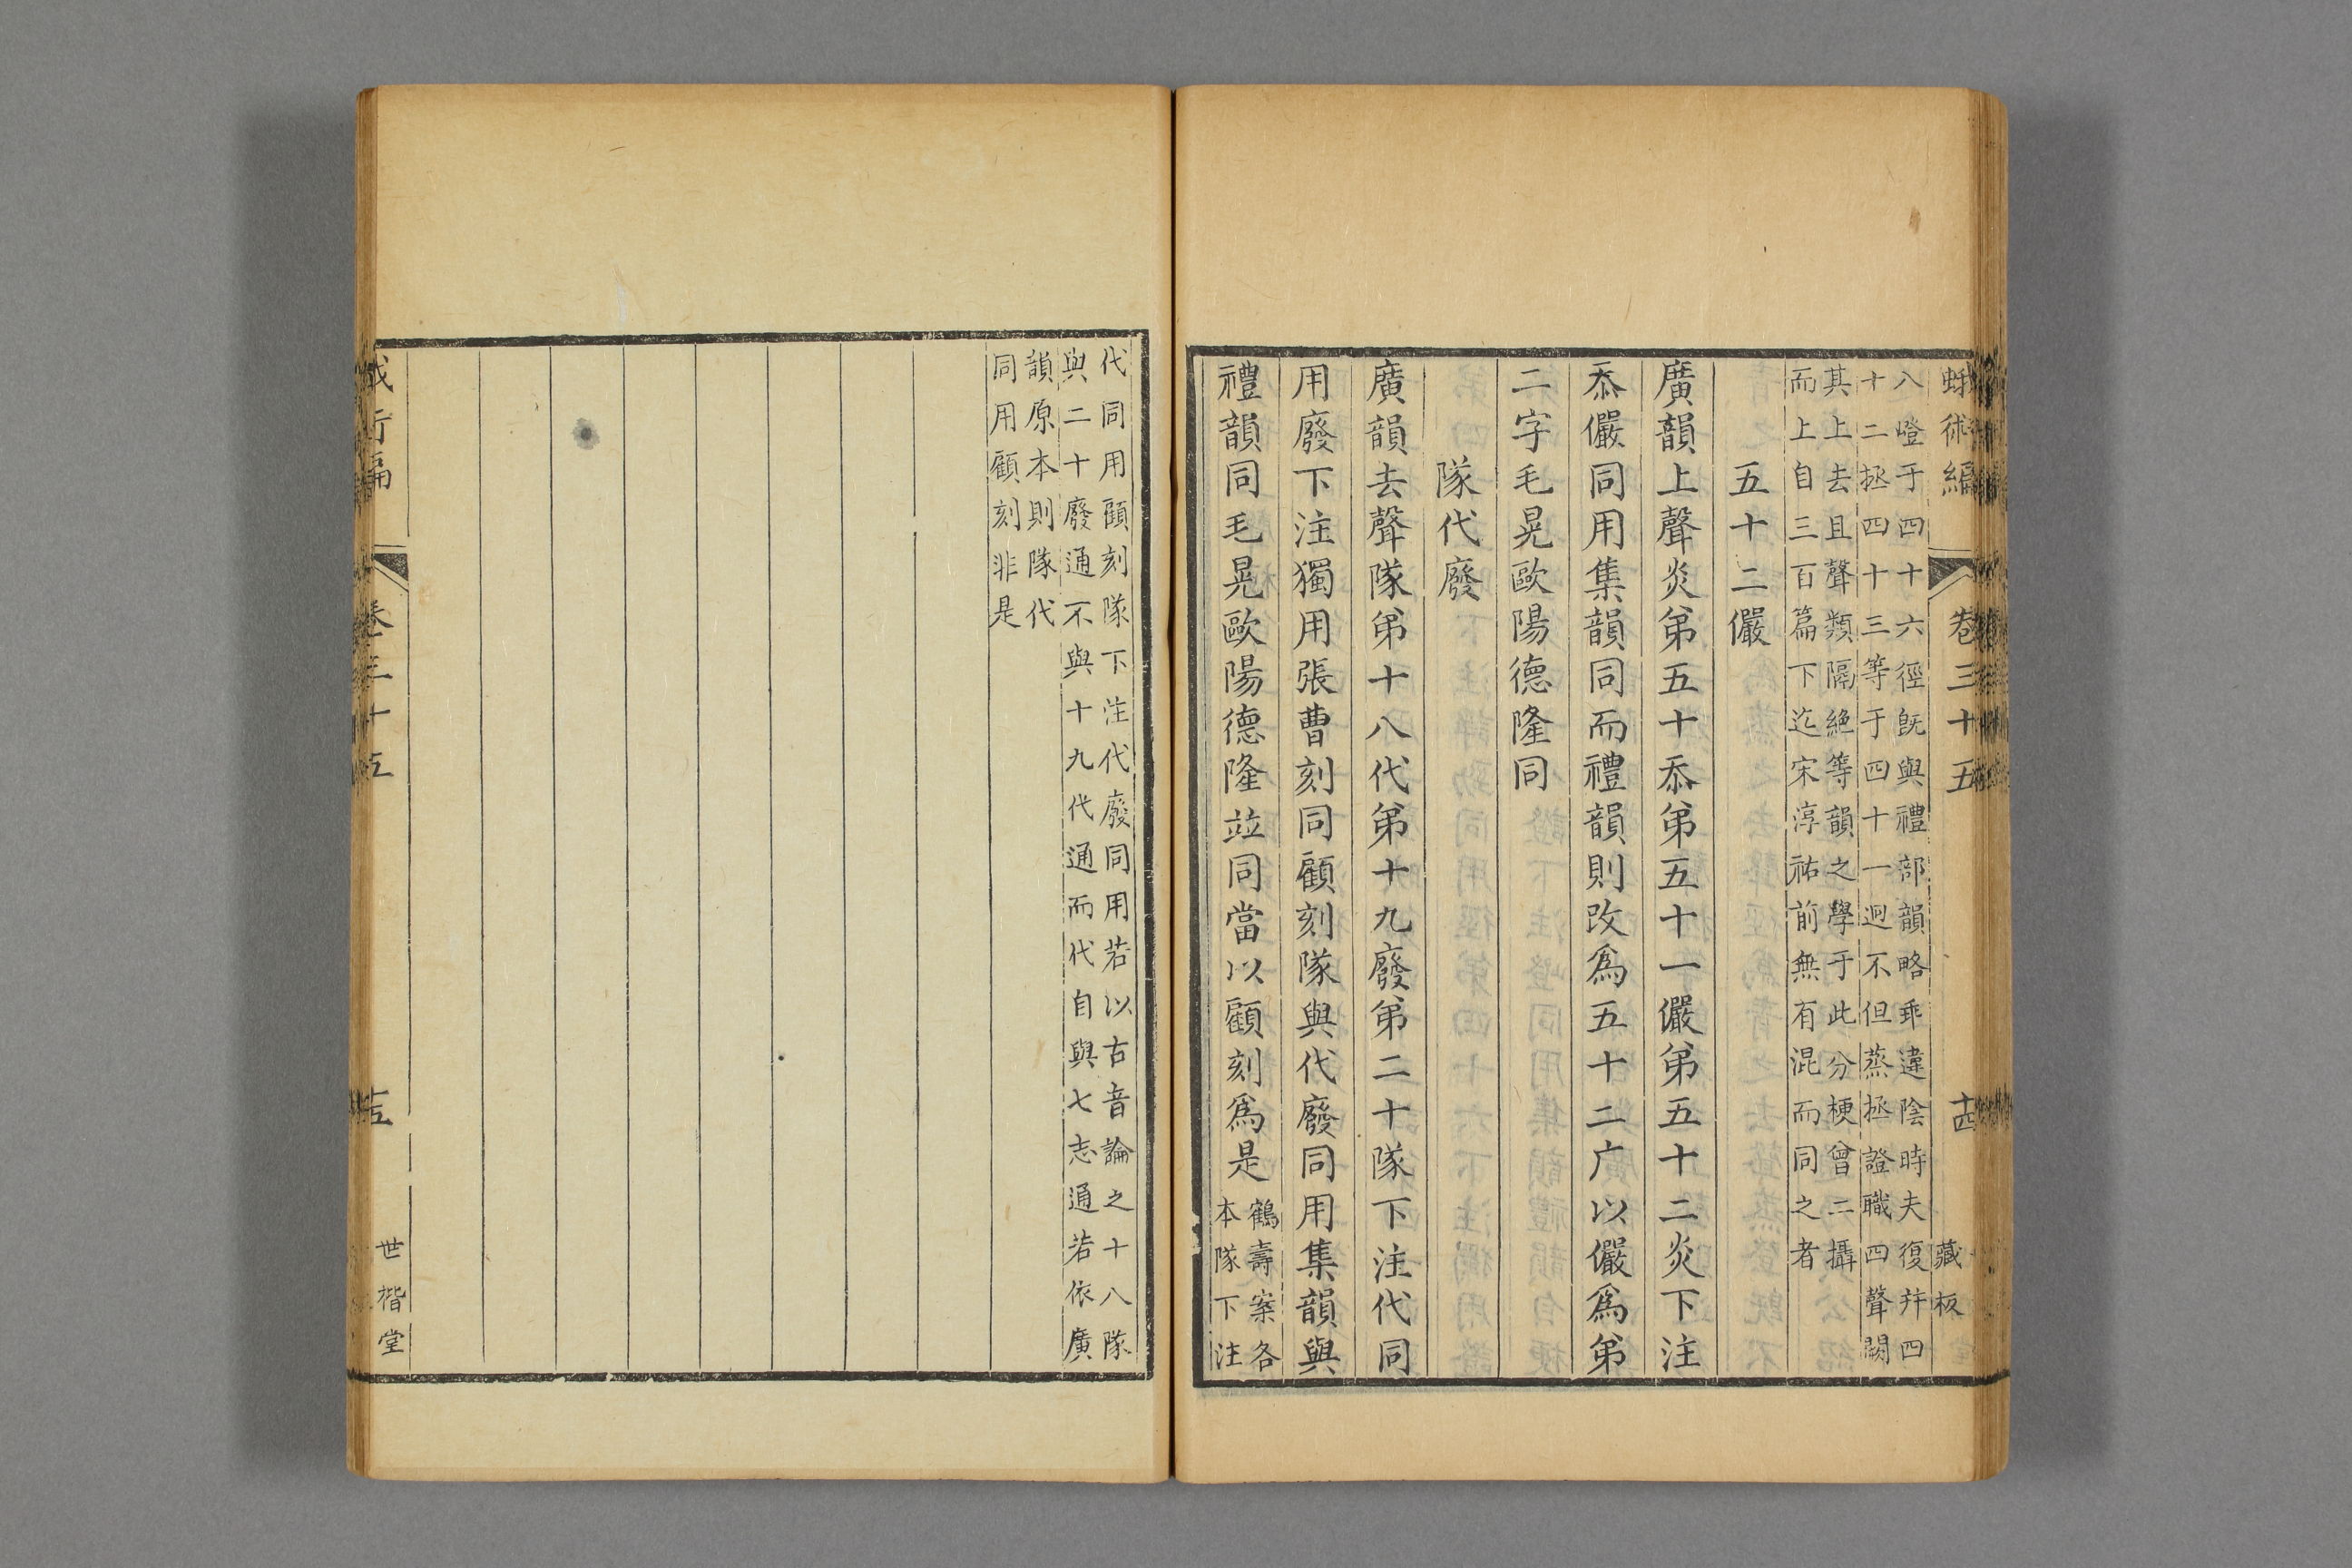 蛾術編 卷三十五 十四 藏板
八嶝于四十六徑旣與禮部韻略乖違陰時夫復幷四
十二拯四十三等于四十一迥不但蒸拯證職四聲闕
其上去且聲類隔絶等韻之學于此分梗曾二攝
而上自三百篇下迄宋淳祐前無有混而同之者
五十二儼
廣韻上聲炎第五十忝第五十一儼第五十二炎下注
忝儼同用集韻同而禮韻則改爲五十二广以儼爲第
二字毛晃歐陽德隆同
隊代廢
廣韻去聲隊第十八代第十九廢第二十隊下注代同
用廢下注獨用張曹刻同顧刻隊與代廢同用集韻與
禮韻同毛晃歐陽德隆竝同當以顧刻爲是
鶴壽案各
本隊下注
代同用顧刻隊下注代廢同用若以古音論之十八隊
與二十廢通不與十九代通而代自與七志通若依廣
韻原本則隊代
同用顧刻非是
卷三十五 十五 世楷堂